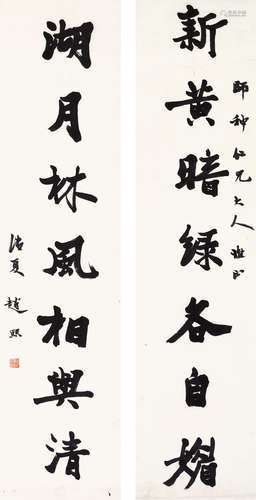 新黄暗绿各自媚
師种仁兄大人雅正
湖月林風相與清
浩夏 趙熙